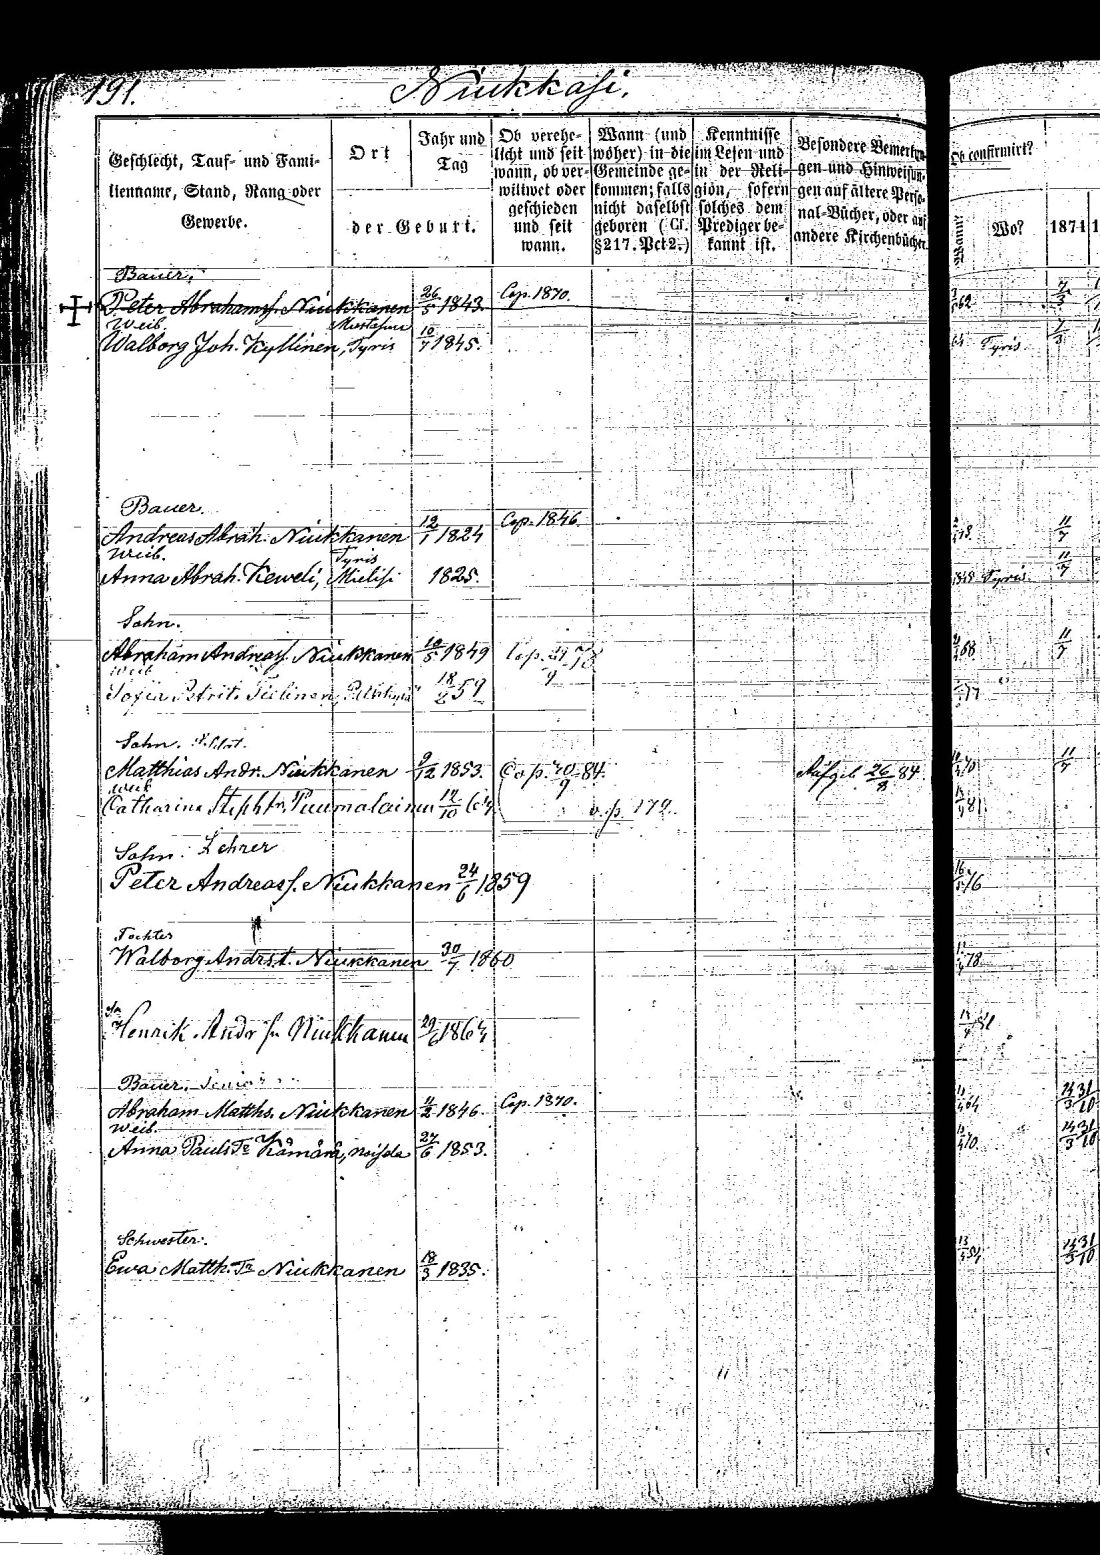 191.
Niukkasi.
Geschlecht, Tauf- und Fami-
lienname, Stand, Rang oder
Gewerbe.
Ort
Jahr und
Tag
der Geburt.
Ob verehe-
licht und seit
wann, ob ver-
wittwet oder
geschieden
und seit
wann.
Wann (und
woher) in die
Gemeinde ge-
kommen; falls
nicht daselbst
geboren (Cf.
§217. Pct 2.)
Kenntnisse
im Lesen und
in der Reli-
gion, sofern
solches dem
Prediger be-
kannt ist.
Besondere Bemerkun-
gen und Hinweisun-
gen auf ältere Perso-
nal-Bücher, oder auf
andere Kirchenbücher.
Ob confirmirt?
Wann?
Wo?
1871
Bauer.
Peter Abrahamsf. Niukkanen 26/5 1843. Cop. 1870.
Weib.
Walborg Joh. Kyllinen, Tyris 10/7 1845. Tyris
Bauer.
Andreas Abrah. Niukkanen 12/1 1824 Cop. 1846. 11/7
Weib. Tyris
Anna Abrah. Keweli, Mielisi 1825. Tyris 11/7
Sohn.
Abraham Andreasf. Niukkanen 1849 11/7
Weib
Sofia Petrit. 18 59
Sohn.
Matthias Andr. Niukkanen 9/12 1853. Cop. 84. 26/8 84. 11/7
Weib
Catharina Stephtr. Puumalainen 12/10 64 v. p. 172.
Sohn. Lehrer
Peter Andreasf. Niukkanen 24/6 1859
Tochter
Walborg Andrst. Niukkanen 30/7 1860 78.
Henrik Andr sn Niukkanen 29/6 1864
Bauer. Senior
Abraham Matths. Niukkanen 4/2 1846. Cop. 1870.
Weib.
Anna Pauls Tr Kämärä, 27/6 1853.
Schwester.
Ewa Matth. Tr Niukkanen 18/3 1835.